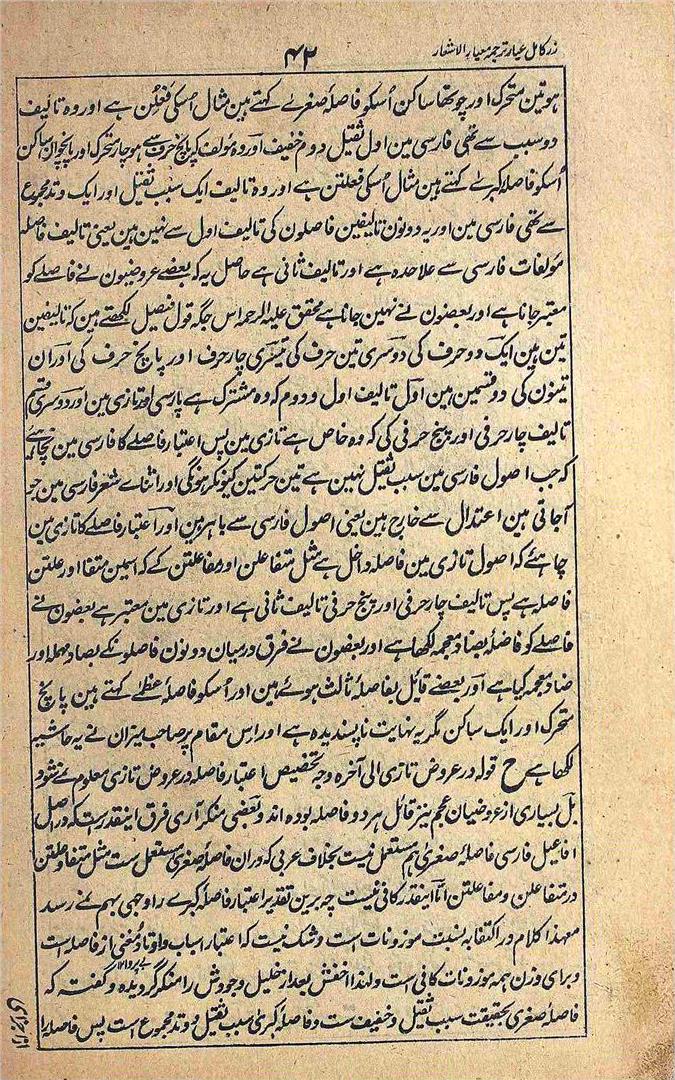 زر کامل عیار ترجمہ معیار الاشعار
۴۲
ہو تین متحرک اور چوتھا ساکن اُسکو فاصلۂ صغرے کہتے ہین مثال اُسکی فَعِلُن ہے اور وہ تالیف
دو سبب سے تھی فارسی مین اول ثقیل دوم خفیف اور وہ مولف کہ پانچ حرف سے ہو چار متحرک اور پانچوان ساکن
اُسکو فاصلۂ کبرے کہتے ہین مثال اُسکی فعلتن ہے اور وہ تالیف ایک سبب ثقیل اور ایک وتد مجموع
سے تھی فارسی مین اور یہ دونون تالیفین فاصلون کی تالیف اول سے نہین ہین یعنی تالیف فاصلہ
مولفات فارسی سے علاحدہ ہے اور تالیف ثانی ہے حاصل یہ کہ بعضے عروضیون نے فاصلے کو
معتبر جانا ہے اور بعضون نے نہین جانا ہے محقق علیہ الرحمہ اس جگہ قول فیصل لکھتے ہین کہ تالیفین
تین ہین ایک دو حرف کی دوسری تین حرف کی تیسری چار حرف اور پانچ حرف کی اور ان
تینون کی دو قسمین ہین اول تالیف اول و دوم کہ وہ مشترک ہے پارسی اور تازی مین اور دوسری قسم
تالیف چار حرفی اور پنج حرفی کی کہ وہ خاص ہے تازی مین پس اعتبار فاصلے کا فارسی مین نچاہئے
کہ جب اصول فارسی مین سبب ثقیل نہین ہے تین حرکتین کیونکر ہونگی اور اثناے شعر فارسی مین جو
آجاتی ہین اعتدال سے خارج ہین یعنی اصول فارسی سے باہر ہین اور اعتبار فاصلے کا تازی مین
چاہئے کہ اصول تازی مین فاصلہ داخل ہے مثل متفاعلن اور مفاعلتن کے کہ اسمین متفا اور علتن
فاصلہ ہے پس تالیف چار حرفی اور پنج حرفی تالیف ثانی ہے اور تازی مین معتبر ہے بعضون نے
فاصلے کو فاضلہ بضاد معجمہ لکھا ہے اور بعضون نے فرق درمیان دونون فاصلونکے بصاد مہملہ اور
ضاد معجمہ کیا ہے اور بعضے قائل بفاصلۂ ثالث ہوئے ہین اور اُسکو فاصلۂ عظمے کہتے ہین پانچ
متحرک اور ایک ساکن مگر یہ نہایت ناپسندیدہ ہے اور اس مقام پر صاحب میزان نے یہ حاشیہ
لکھا ہے ح قولہ در عروض تازی الی آخرہ وجہ تخصیص اعتبار فاصلہ در عروض تازی معلوم نمے شود
بل بسیاری از عروضیان عجم نیز قائل ہر دو فاصلہ بودہ اند و بعضی منکر آری فرق اینقدرست کہ در اصل
افاعیل فارسی فاصلۂ صغریٰ ہم مستعمل نیست بخلاف عربی کہ در ان فاصلۂ صغریٰ مستعمل ست مثل متفا و علتن
در متفاعلن و مفاعلتن اما اینقدر کافی نیست چہ برین تقدیر اعتبار فاصلۂ کبرے را وجہی بہم نمے رسد
معہذا کلام در اکتفا بہ نسبت موزونات است و شک نیست کہ اعتبار اسباب و اوتاد مُغنی از فاصلہ است
و برای وزن ہمہ موزونات کافی است و لہٰذا اخفش بعد از خلیل وجودش را منکر گردیدہ و گفتہ کہ
فاصلۂ صغری بحقیقت سبب ثقیل و خفیف ست و فاصلۂ کبریٰ سبب ثقیل و وتد مجموع است پس فاصلہ را